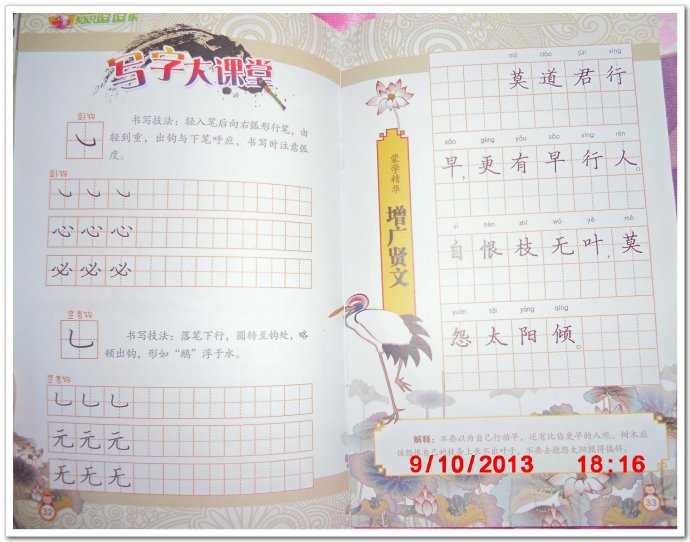 写字大课堂
卧钩
书写技法：轻入笔后向右弧形行笔，由
轻到重，出钩与下笔呼应，书写时注意弧
度。
卧钩
心心心
必必必
竖弯钩
书写技法：落笔下行，圆转至钩处，略
顿出钩，形如“鹅”浮于水。
竖弯钩
元元元
无无无
32
蒙学精华
增广贤文
mò dào jūn xíng
莫道君行
zǎo gèng yǒu zǎo xíng rén
早，更有早行人。
zì hèn zhī wú yè mò
自恨枝无叶，莫
yuàn tài yáng qīng
怨太阳倾。
解释：不要以为自己行动早，还有比你更早的人呢。树木应
该怨恨自己的枝条上长不出叶子，不要去抱怨太阳照得偏斜。
9/10/2013 18:16
33